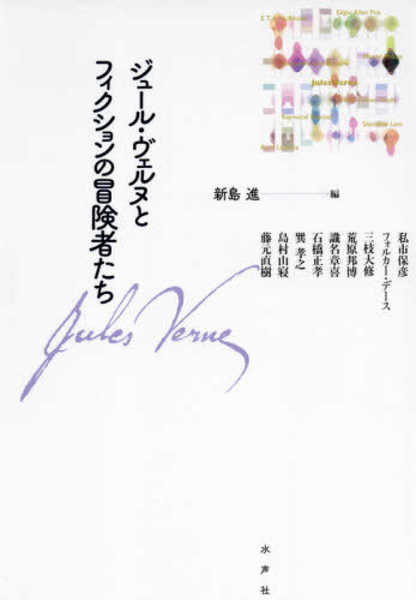 Edgar Allan Poe
Jules Verne
Stanislaw Lem
ジュール・ヴェルヌと
フィクションの冒険者たち
新島 進 編
私市保彦
フォルカー・デース
三枝大修
荒原邦博
識名章喜
石橋正孝
巽 孝之
島村山寝
藤元直樹
Jules Verne
水声社